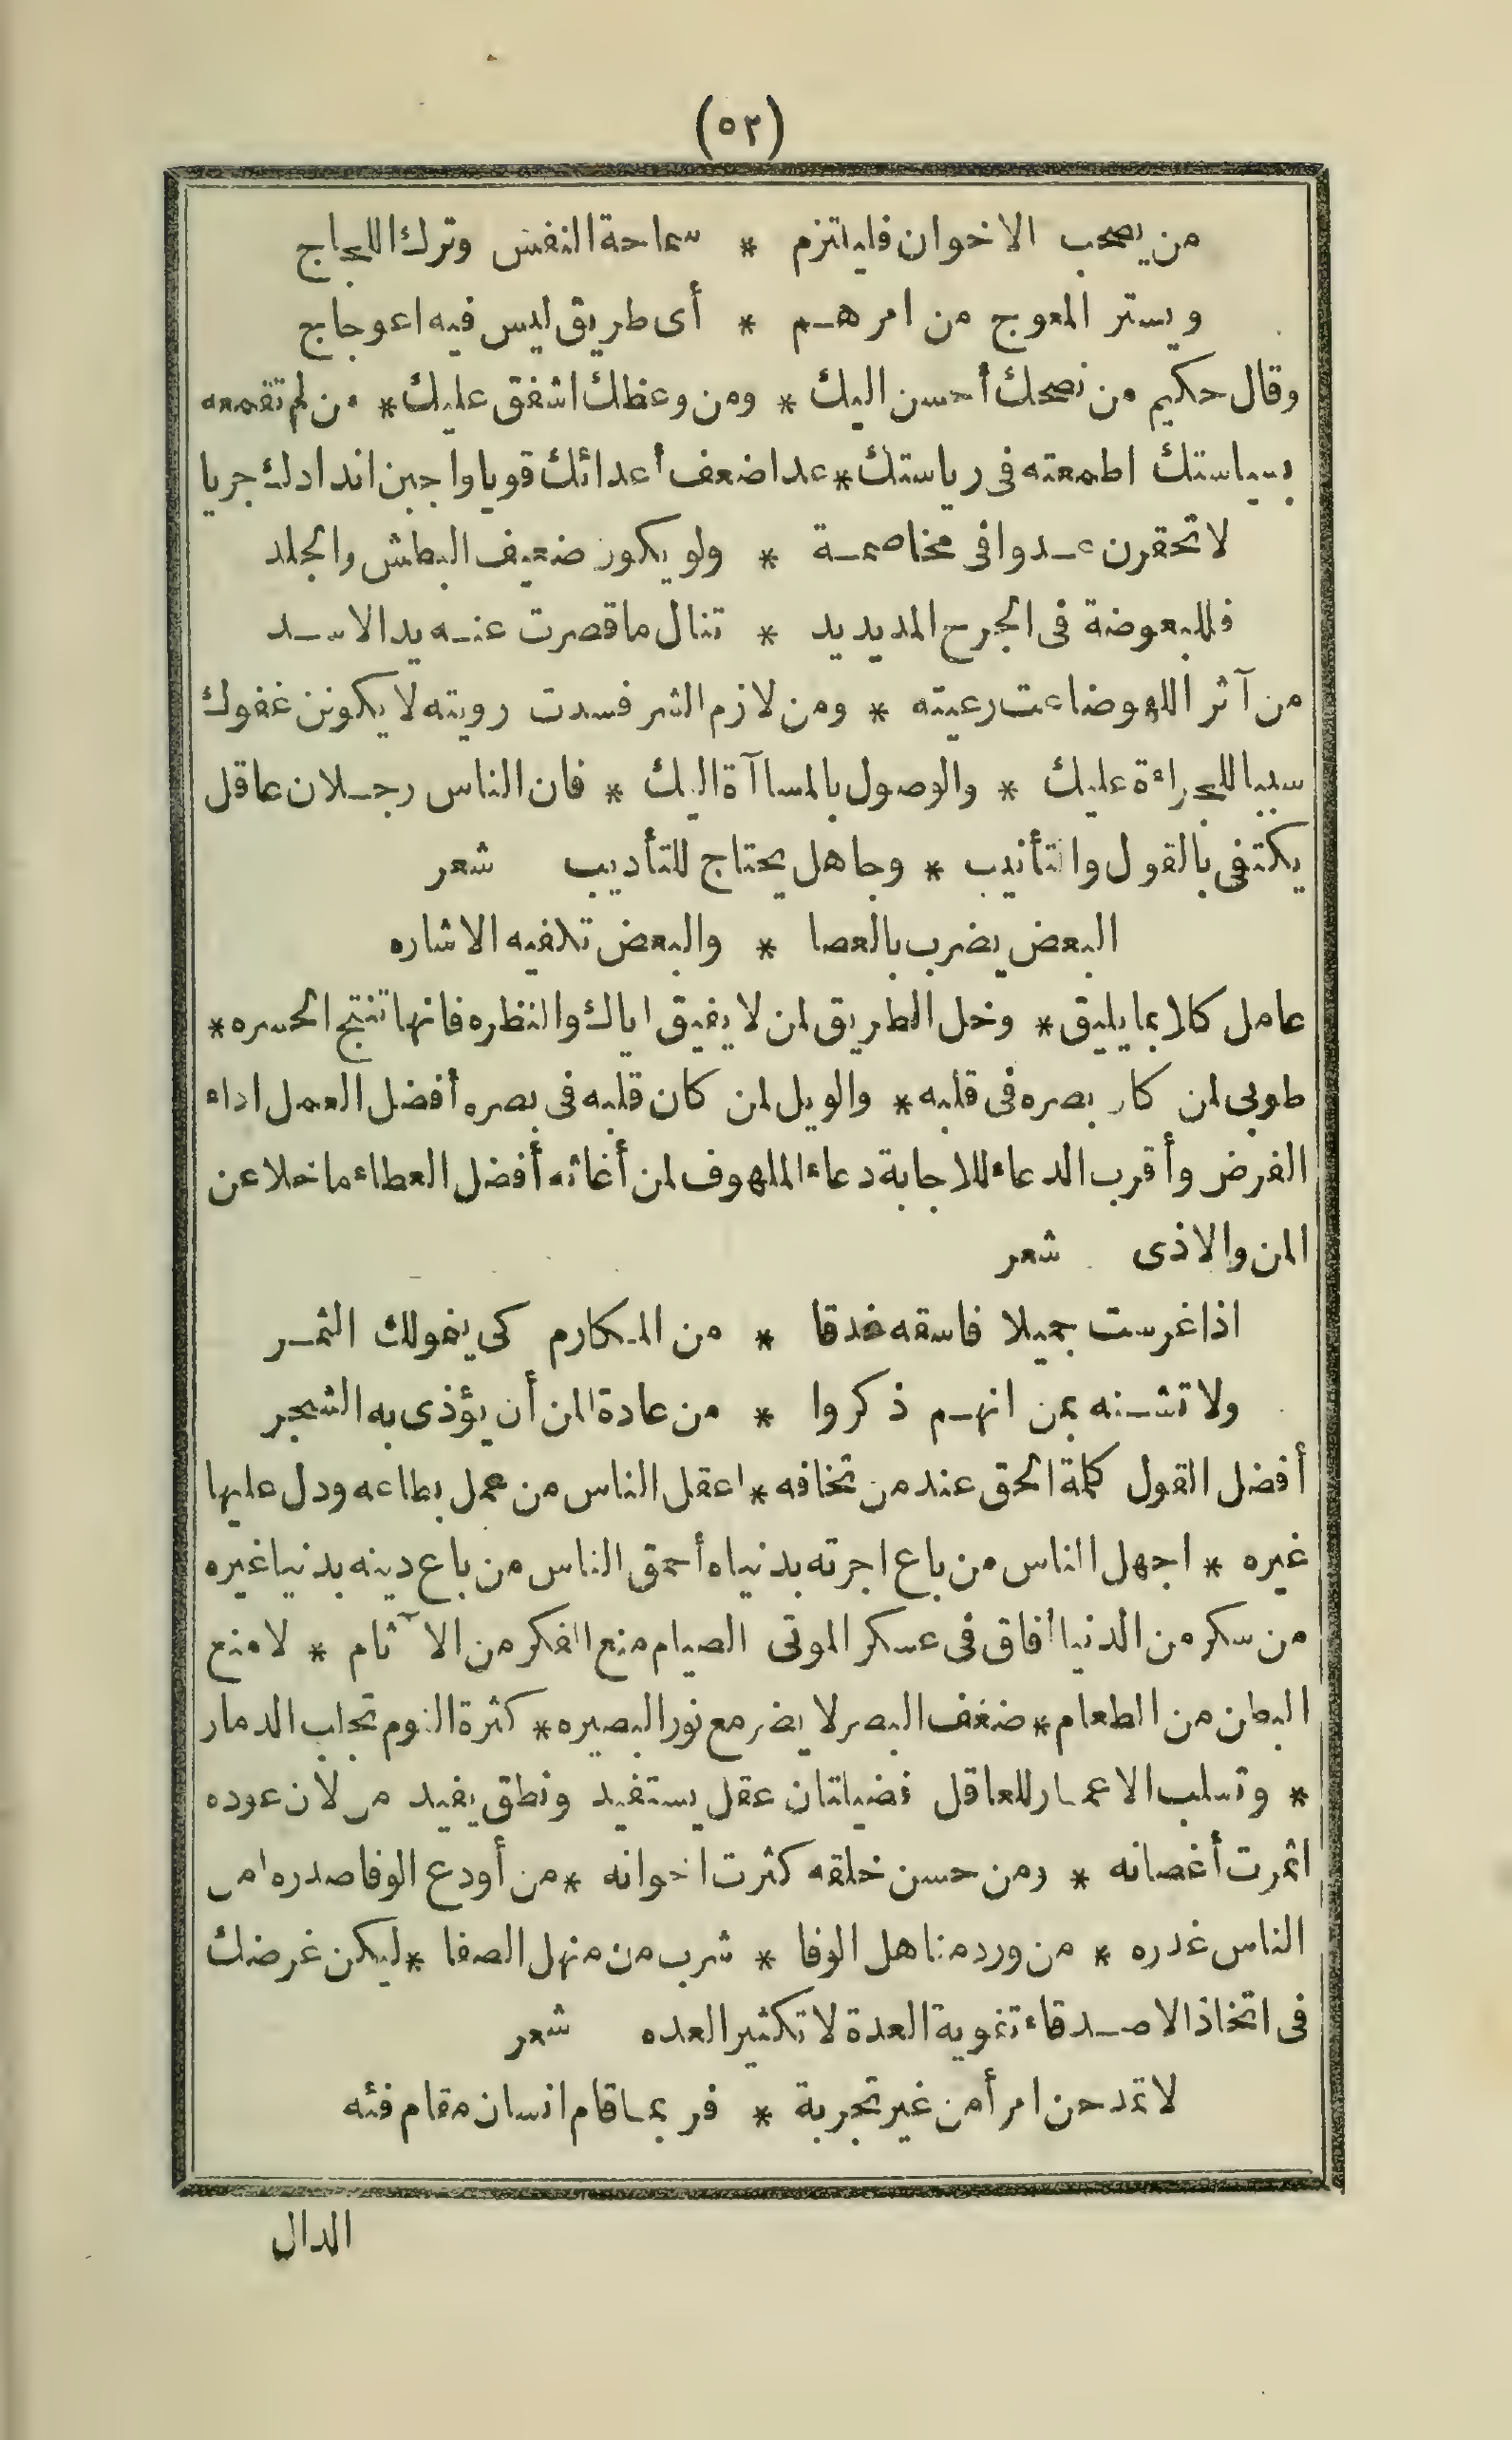 (٥٢)
من يصحب الاخوان فليلتزم * سماحة النفس وترك اللجاج
ويستر المعوج من امرهم * أى طريق ليس فيه اعوجاج
وقال حكيم من نصحك أحسن اليك * ومن وعظك اشفق عليك * من لم تقمعه
بسياستك اطمعته فى رياستك * عداضعف أعدائك قويا واجبن اندادك جريا
لا تحقرن عدوا فى مخاصمة * ولو يكون ضعيف البطش والجلد
فللبعوضة فى الجرح المديد يد * تنال ما قصرت عنه يد الاسد
من آثر اللهو ضاعت رعيته * ومن لازم الشر فسدت رويته لا يكونن عفوك
سببا للجراءة عليك * والوصول بالمساآة اليك * فان الناس رجلان عاقل
يكتفى بالقول والتأنيب * وجاهل يحتاج للتأديب شعر
البعض يضرب بالعصا * والبعض تكفيه الاشاره
عامل كلا بما يليق * وخل الطريق لمن لا يفيق اياك والنظره فانها تنتج الحسره *
طوبى لمن كان بصره فى قلبه * والويل لمن كان قلبه فى بصره أفضل العمل اداء
الفرض وأقرب الدعاء للاجابة دعاء الملهوف لمن أغاثه أفضل العطاء ما خلا عن
المن والاذى شعر
اذا غرست جميلا فاسقه غدقا * من المكارم كى ينمو لك الثمر
ولا تشنه بمن انهم ذكروا * من عادة المن أن يؤذى به الشجر
أفضل القول كلمة الحق عند من تخافه * اعقل الناس من عمل بطاعه ودل عليها
غيره * اجهل الناس من باع اجرته بدنياه أحمق الناس من باع دينه بدنيا غيره
من سكر من الدنيا أفاق فى عسكر الموتى الصيام منع الفكر من الآثام * لا منع
البطن من الطعام * ضعف البصر لا يضر مع نور البصيره * كثرة النوم تجلب الدمار
* وتسلب الاعمار للعاقل فضيلتان عقل يستفيد ونطق يفيد من لان عوده
اثمرت أغصانه * ومن حسن خلقه كثرت اخوانه * من أودع الوفا صدره امن
الناس غدره * من ورد مناهل الوفا * شرب من منهل الصفا * ليكن غرضك
فى اتخاذ الاصدقاء تقوية العدة لا تكثير العده شعر
لا تمدحن امرأ من غير تجربة * فربما قام انسان مقام فئه
الدال